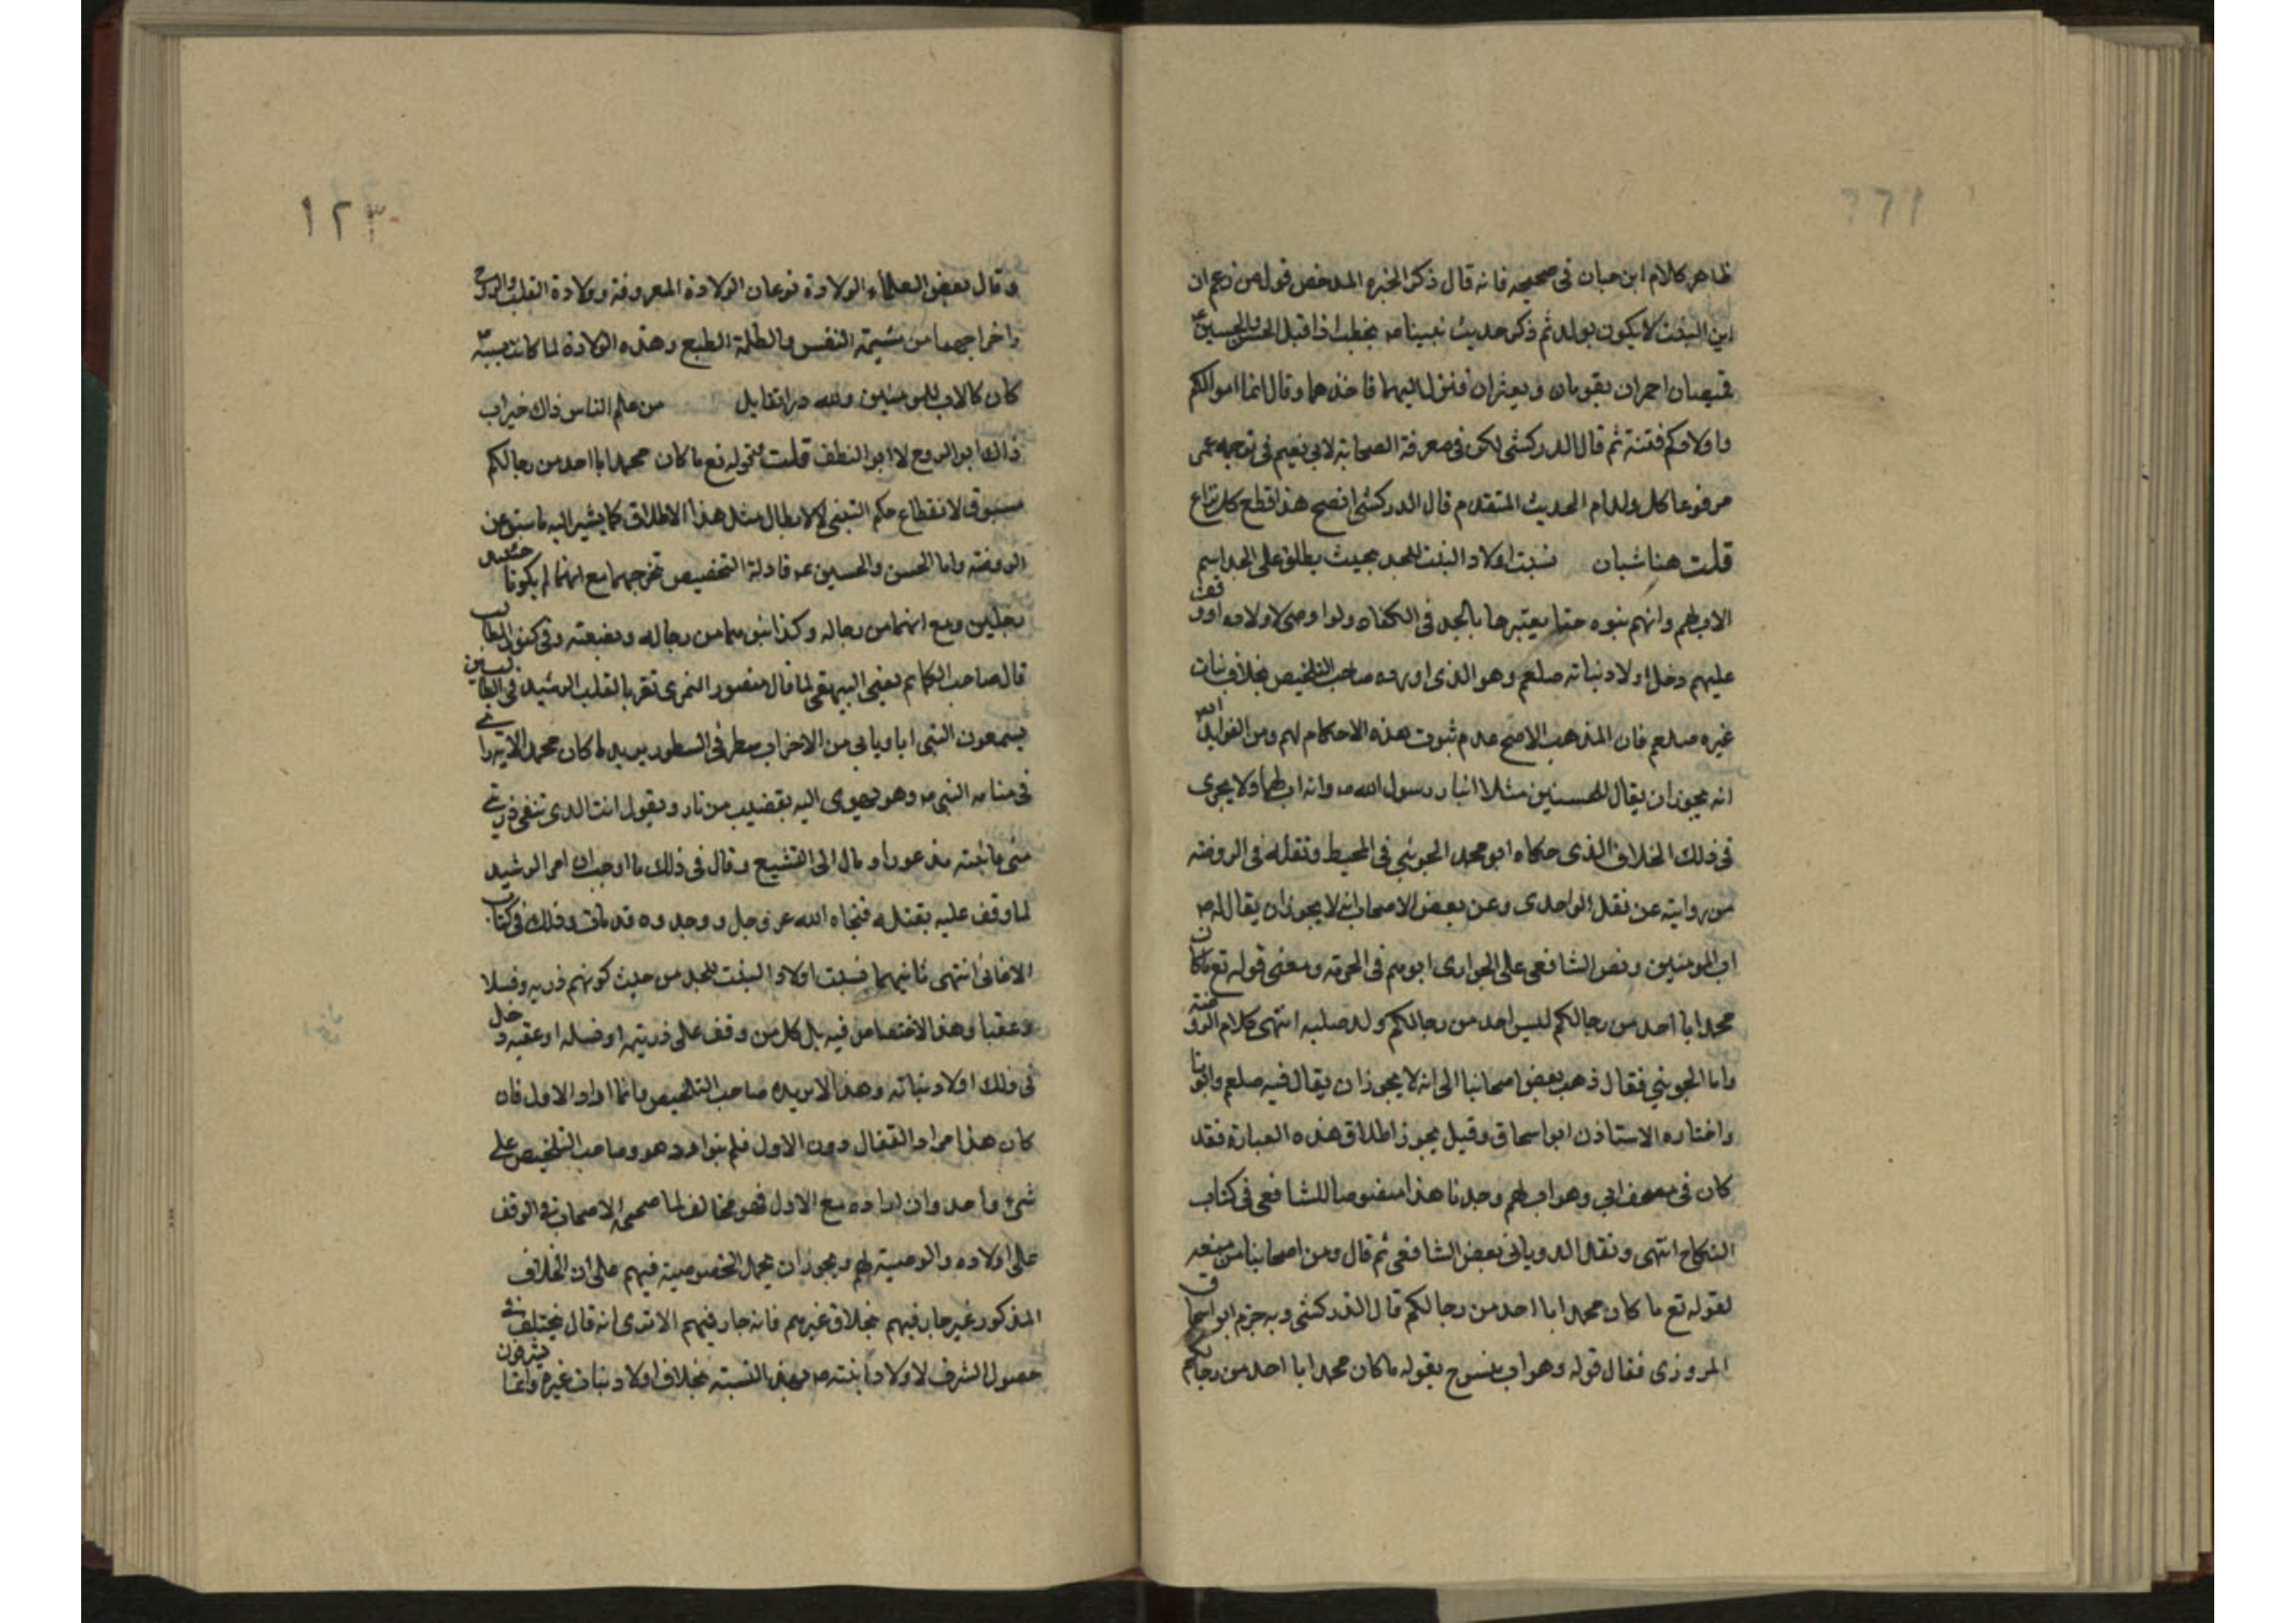 ظاهر كلام ابن حبان فى صحيحه فانه قال ذكر الخبر المدحض قول من زعم ان
ابن البنت لا يكون بولد ثم ذكر حديث نبينا صه يخطب اذ اقبل الحسن والحسين عه
قميصان احمران يقومان ويعثران فنزل اليهما فاخذهما وقال انما اموالكم
واولادكم فتنة ثم قال الدركشى لكن فى معرفة الصحابة لابى نعيم فى ترجمه عمر
مرفوعا كل ولد ام الحديث المتقدم قال الدركشى افصح هذا قطع كل نزاع
قلت هنا شيان نسبت اولاد البنت للجد بحيث يطلق على الجد اسم
الاب لهم وانهم بنوه حتى يعتبرها بالجد فى الكفاه ولو اوصى لاولاده او وقف
عليهم دخل اولاد بناته صلعم وهو الذى اورده صاحب التلخيص بخلاف بنات
غيره صلعم فان المذهب الاصح عدم ثبوت هذه الاحكام لهم ومن الفوايد
انه يجوز ان يقال للحسنين مثلا ابنا رسول الله صه وانه اب لهما ولا يجرى
فى ذلك الخلاف الذى حكاه ابو محمد الجوينى فى المحيط ونقله فى الروضه
من روايته عن نقل الواحدى وعن بعض الاصحاب انه لا يجوز ان يقال له صه
اب المومنين ونص الشافعى على الجوازى ابوهم فى الحرمة ومعنى قوله تع ما كان
محمد ابا احد من رجالكم ليس احد من رجالكم ولد صلبه انتهى كلام الروضه
واما الجوينى فقال ذهب بعض اصحابنا الى انه لا يجوز ان يقال فيه صلعم وابونا
واختاره الاستاذ ابو اسحاق وقيل يجوز اطلاق هذه العبارة فقد
كان فى مصحف ابي وهو اب لهم وجدنا هذا منصوصا للشافعى فى كتاب
النكاح انتهى ونقل الدويانى بعض الشافعى ثم قال ومن اصحابنا من منعه
لقوله تع ما كان محمد ابا احد من رجالكم قال الدركشى وبه جزم ابو اسحاق
المروزى فقال قوله وهو اب منسوخ بقوله ما كان محمد ابا احد من رجالكم
١٢٣
وقال بعض العلماء الولادة نوعان الولادة المعروفة وولادة القلب والروح
واخراجهما من مشيمة النفس والظلمة الطبع وهذه الولادة لما كانت بسببه
كان كالاب للمومنين ولله در القايل من علم الناس ذاك خير اب
ذاك ابو الروح لا ابو النطف قلت فقوله تع ما كان محمد ابا احد من رجالكم
مسبوق لانقطاع حكم التبنى لا لابطال مثل هذا الاطلاق كما يشير اليه ما سبق عن
الروضة واما الحسن والحسين عه فادلة التخصيص تخرجهما مع انهما لم يكونا حينئذ
رجلين ومع انهما من رجاله وكذا بنوهما من رجاله وبضعته وفى كنوز المطالب
قال صاحب الكلام يعنى البيهقى لما قال منصور النمرى تقربا لقلب الرشيد فى الطالبيين
يسمعون النبى ابا ويابى من الاحزاب سطر فى السطور يريد ما كان محمد الايه راى
فى منامه النبى صه وهو يهوى اليه بقضيب من نار ويقول انت الذى تنفى ذريتى
منى فانتبه مذعورا ومال الى التشيع وقال فى ذلك ما اوجب ان امر الرشيد
لما وقف عليه بقتله فنجاه الله عز وجل ووجدوه قد مات وذلك فى كتاب
الاغانى انتهى ثانيهما نسبت اولاد البنت للجد من حيث كونهم ذريه ونسلا
وعقبا وهذا لا اختصاص فيه بل كل من وقف على ذريته او نسله او عقبه دخل
فى ذلك اولاد بناته وهذا لا يريده صاحب التلخيص وانما اراد الاول فان
كان هذا مراد القفال دون الاول فلم يتوارد هو وصاحب التلخيص على
شئ واحد وان اراده مع الاول فهو مخالف لما صححه الاصحاب فى الوقف
على اولاده والوصية لهم ويجوز ان يحمل الخصوصية فيهم على ان الخلاف
المذكور غير جار فيهم بخلاف غيرهم فانه جار فيهم الا ترى انه قال يختلف فى
حصول الشرف لاولاد ابنته صه بهذا النسبته بخلاف اولاد بنات غيره وانما يشرفون